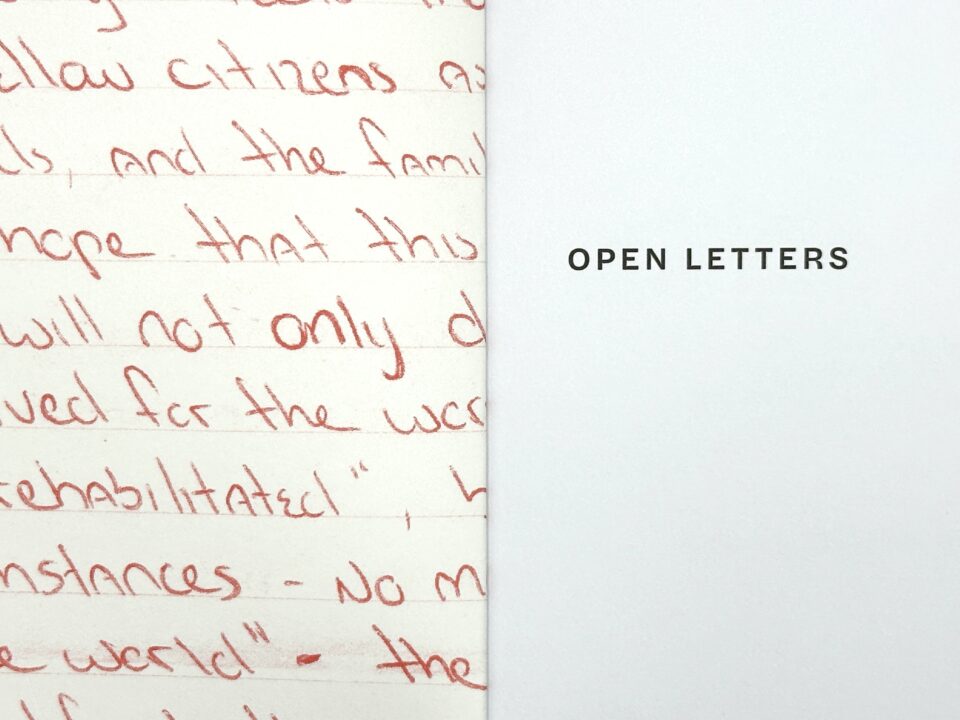 ellow citizens as
ds, and the famil
hope that this
will not only d
ved for the wor
rehabilitated", h
nstances - No m
e world" - the
OPEN LETTERS